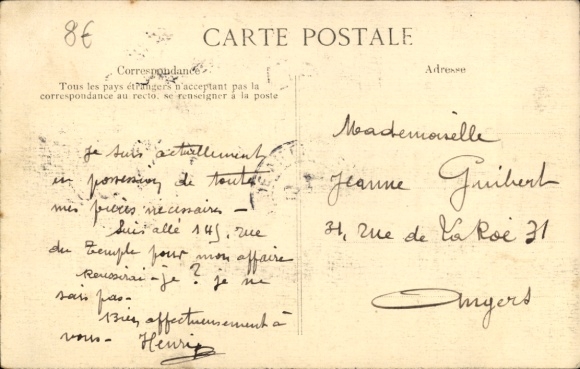 8€
CARTE POSTALE
Correspondance
Tous les pays étrangers n'acceptant pas la
correspondance au recto, se renseigner à la poste
Adresse
Je suis actuellement
en possession de toutes
mes pièces nécessaires -
Suis allé 145, rue
du Temple pour mon affaire
Reussirai-je ? je ne
sais pas -
Bien affectueusement à
vous - Henri
Mademoiselle
Jeanne Guibert
31, rue de la Roë 31
Angers